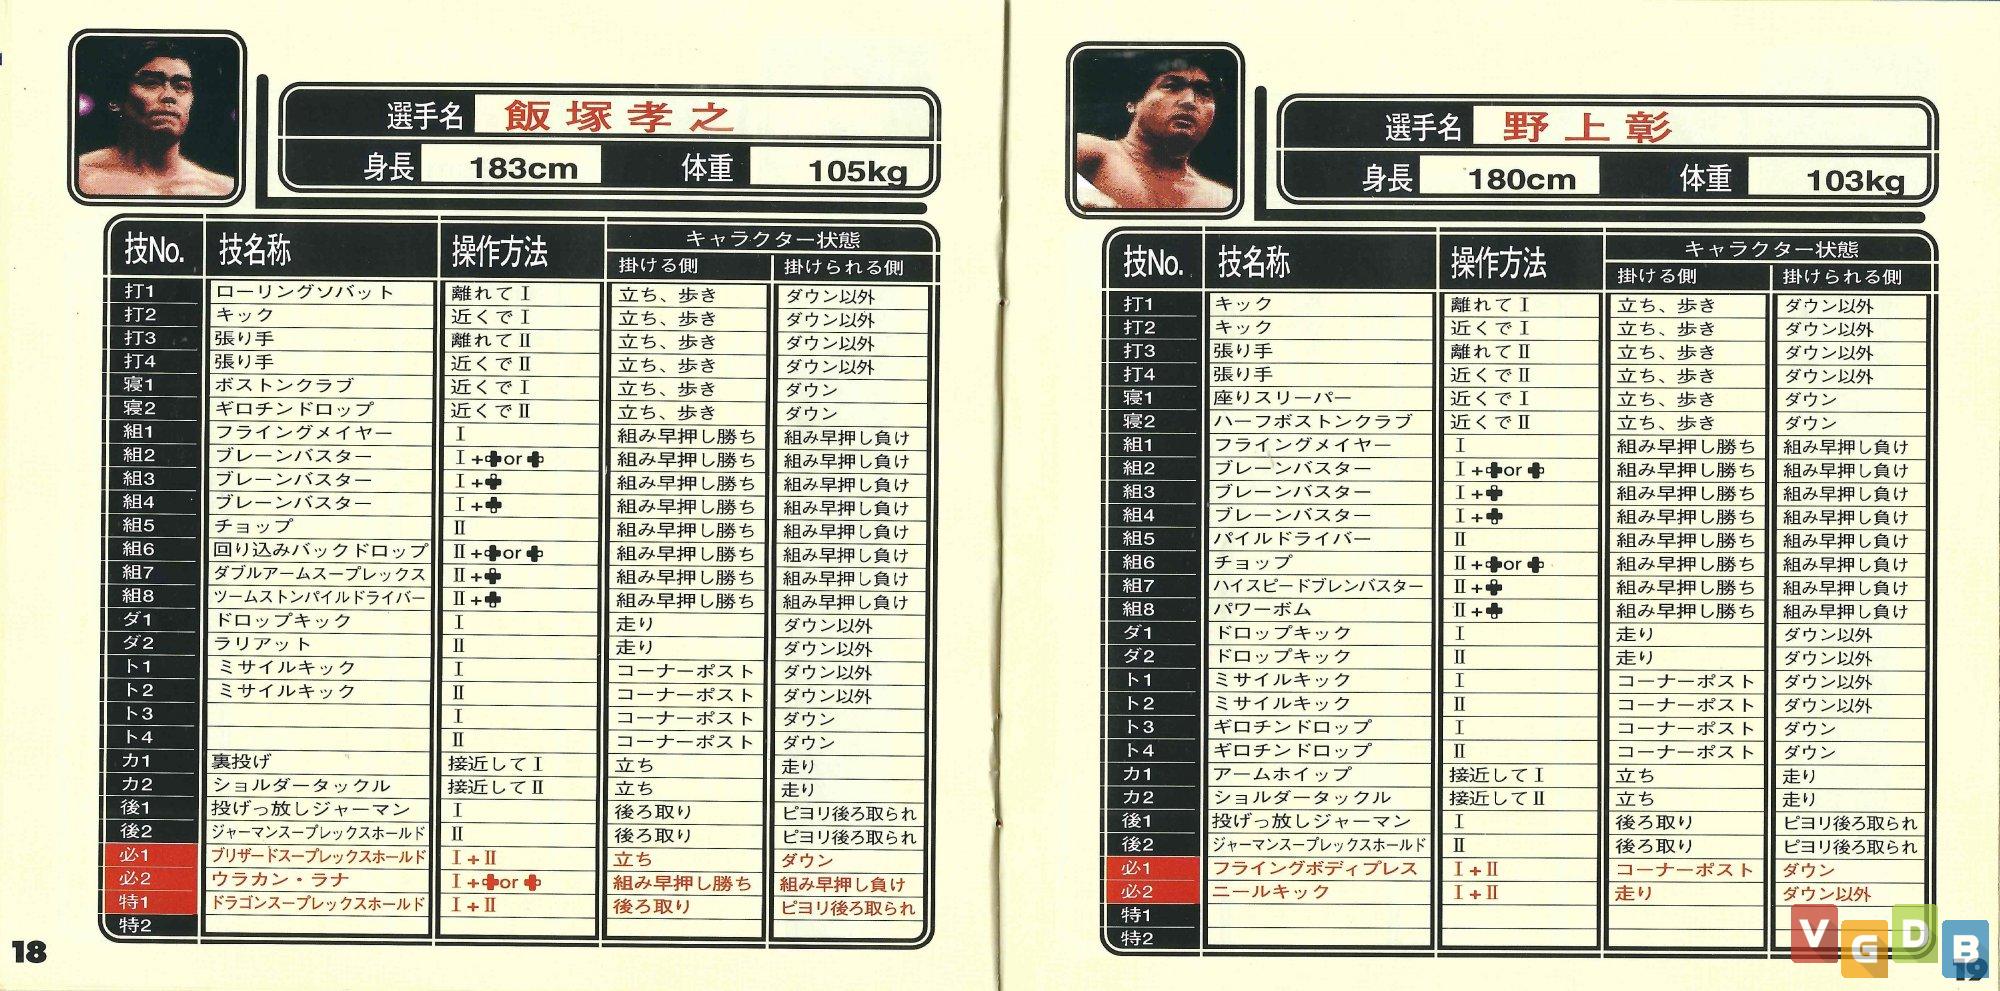 選手名 飯塚孝之
身長 183cm 体重 105kg
技No. 技名称 操作方法 キャラクター状態
掛ける側 掛けられる側
打1 ローリングソバット 離れてⅠ 立ち、歩き ダウン以外
打2 キック 近くでⅠ 立ち、歩き ダウン以外
打3 張り手 離れてⅡ 立ち、歩き ダウン以外
打4 張り手 近くでⅡ 立ち、歩き ダウン以外
寝1 ボストンクラブ 近くでⅠ 立ち、歩き ダウン
寝2 ギロチンドロップ 近くでⅡ 立ち、歩き ダウン
組1 フライングメイヤー Ⅰ 組み早押し勝ち 組み早押し負け
組2 ブレーンバスター Ⅰ+✚or✚ 組み早押し勝ち 組み早押し負け
組3 ブレーンバスター Ⅰ+✚ 組み早押し勝ち 組み早押し負け
組4 ブレーンバスター Ⅰ+✚ 組み早押し勝ち 組み早押し負け
組5 チョップ Ⅱ 組み早押し勝ち 組み早押し負け
組6 回り込みバックドロップ Ⅱ+✚or✚ 組み早押し勝ち 組み早押し負け
組7 ダブルアームスープレックス Ⅱ+✚ 組み早押し勝ち 組み早押し負け
組8 ツームストンパイルドライバー Ⅱ+✚ 組み早押し勝ち 組み早押し負け
ダ1 ドロップキック Ⅰ 走り ダウン以外
ダ2 ラリアット Ⅱ 走り ダウン以外
ト1 ミサイルキック Ⅰ コーナーポスト ダウン以外
ト2 ミサイルキック Ⅱ コーナーポスト ダウン以外
ト3 Ⅰ コーナーポスト ダウン
ト4 Ⅱ コーナーポスト ダウン
カ1 裏投げ 接近してⅠ 立ち 走り
カ2 ショルダータックル 接近してⅡ 立ち 走り
後1 投げっ放しジャーマン Ⅰ 後ろ取り ピヨリ後ろ取られ
後2 ジャーマンスープレックスホールド Ⅱ 後ろ取り ピヨリ後ろ取られ
必1 ブリザードスープレックスホールド Ⅰ+Ⅱ 立ち ダウン
必2 ウラカン・ラナ Ⅰ+✚or✚ 組み早押し勝ち 組み早押し負け
特1 ドラゴンスープレックスホールド Ⅰ+Ⅱ 後ろ取り ピヨリ後ろ取られ
特2
18
選手名 野上彰
身長 180cm 体重 103kg
技No. 技名称 操作方法 キャラクター状態
掛ける側 掛けられる側
打1 キック 離れてⅠ 立ち、歩き ダウン以外
打2 キック 近くでⅠ 立ち、歩き ダウン以外
打3 張り手 離れてⅡ 立ち、歩き ダウン以外
打4 張り手 近くでⅡ 立ち、歩き ダウン以外
寝1 座りスリーパー 近くでⅠ 立ち、歩き ダウン
寝2 ハーフボストンクラブ 近くでⅡ 立ち、歩き ダウン
組1 フライングメイヤー Ⅰ 組み早押し勝ち 組み早押し負け
組2 ブレーンバスター Ⅰ+✚or✚ 組み早押し勝ち 組み早押し負け
組3 ブレーンバスター Ⅰ+✚ 組み早押し勝ち 組み早押し負け
組4 ブレーンバスター Ⅰ+✚ 組み早押し勝ち 組み早押し負け
組5 パイルドライバー Ⅱ 組み早押し勝ち 組み早押し負け
組6 チョップ Ⅱ+✚or✚ 組み早押し勝ち 組み早押し負け
組7 ハイスピードブレンバスター Ⅱ+✚ 組み早押し勝ち 組み早押し負け
組8 パワーボム Ⅱ+✚ 組み早押し勝ち 組み早押し負け
ダ1 ドロップキック Ⅰ 走り ダウン以外
ダ2 ドロップキック Ⅱ 走り ダウン以外
ト1 ミサイルキック Ⅰ コーナーポスト ダウン以外
ト2 ミサイルキック Ⅱ コーナーポスト ダウン以外
ト3 ギロチンドロップ Ⅰ コーナーポスト ダウン
ト4 ギロチンドロップ Ⅱ コーナーポスト ダウン
カ1 アームホイップ 接近してⅠ 立ち 走り
カ2 ショルダータックル 接近してⅡ 立ち 走り
後1 投げっ放しジャーマン Ⅰ 後ろ取り ピヨリ後ろ取られ
後2 ジャーマンスープレックスホールド Ⅱ 後ろ取り ピヨリ後ろ取られ
必1 フライングボディプレス Ⅰ+Ⅱ コーナーポスト ダウン
必2 ニールキック Ⅰ+Ⅱ 走り ダウン以外
特1
特2
VGDB
19